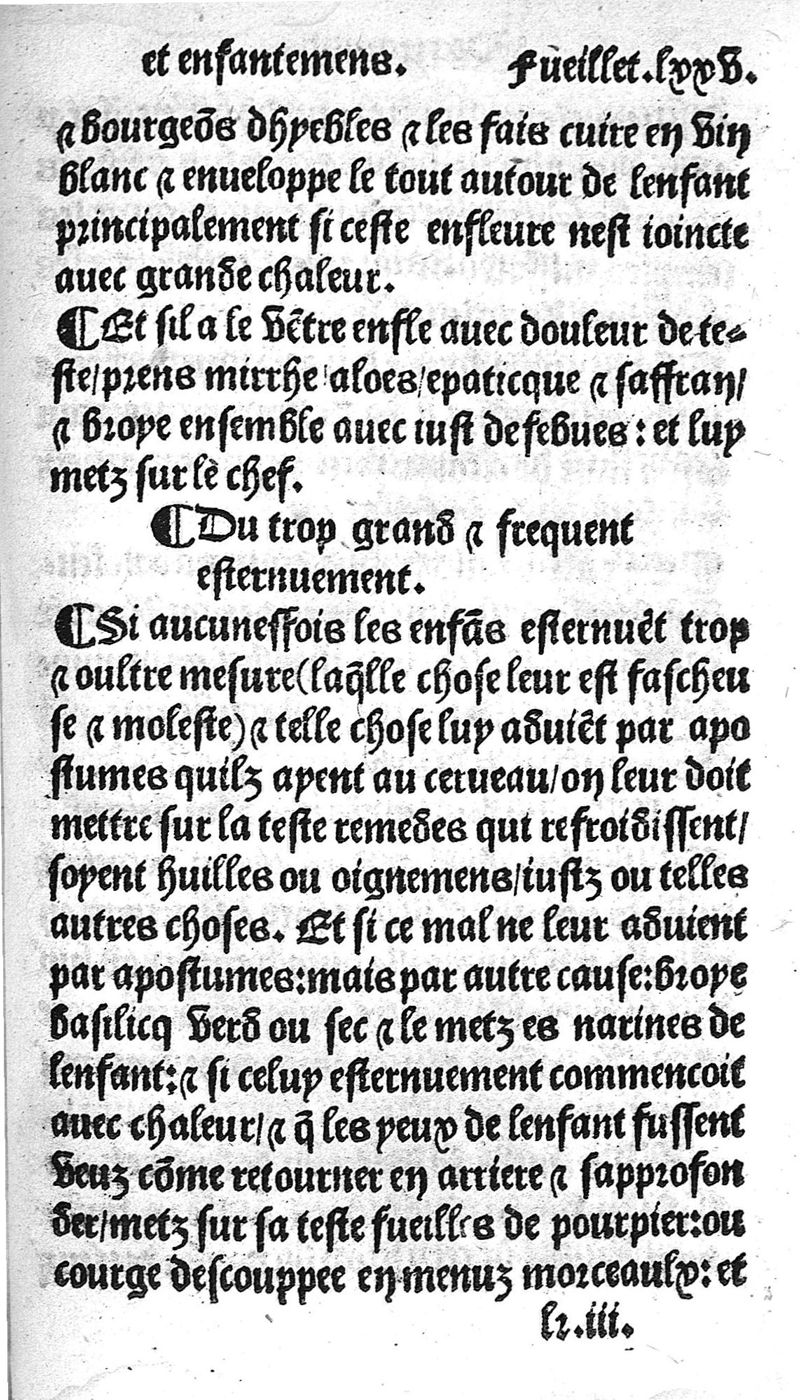 et enfantemens. Fueillet.lxxv.
⁊ bourgeōs dhyebles ⁊ les fais cuire en vin
blanc ⁊ enueloppe le tout autour de lenfant
principalement si ceste enfleure nest ioincte
auec grande chaleur.
¶Et sil a le vētre enfle auec douleur de te-
ste/prens mirrhe/aloes/epaticque ⁊ saffran/
⁊ broye ensemble auec iust de febues: et luy
metz sur le chef.
¶Du trop grand ⁊ frequent
esternuement.
¶Si aucuneffois les enfās esternuēt trop
⁊ oultre mesure(laq̄lle chose leur est fascheu
se ⁊ moleste)⁊ telle chose luy aduiēt par apo
stumes quilz ayent au cerueau/on leur doit
mettre sur la teste remedes qui refroidissent/
soyent huilles ou oignemens/iustz ou telles
autres choses. Et si ce mal ne leur aduient
par apostumes:mais par autre cause:broye
basilicq verd ou sec ⁊ le metz es narines de
lenfant:⁊ si celuy esternuement commencoit
auec chaleur/⁊ q̄ les yeux de lenfant fussent
veuz cōme retourner en arriere ⁊ sapprofon
der/metz sur sa teste fueilles de pourpier:ou
courge descouppee en menuz morceaulx: et
k.iii.